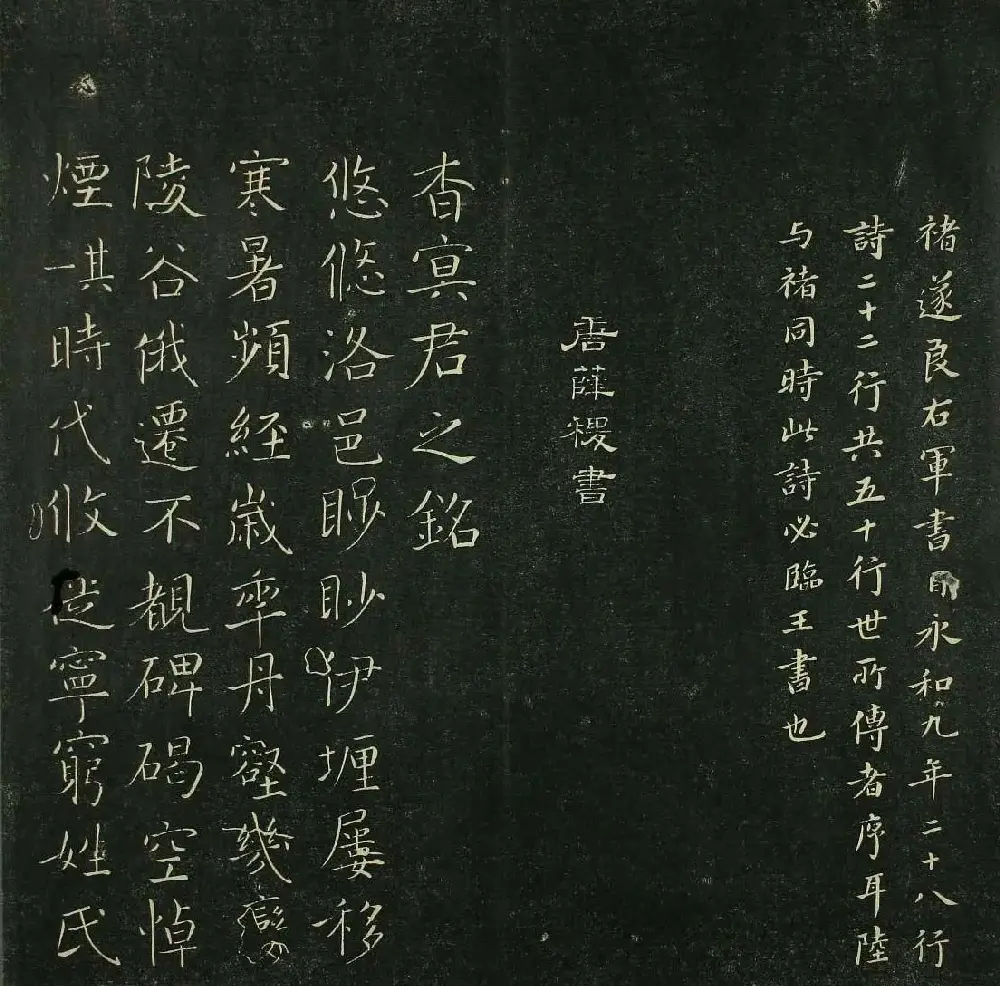 褚遂良右軍書目永和九年二十八行
詩二十二行共五十行世所傳者序耳陸
与褚同時此詩必臨王書也
唐薛稷書
杳冥君之銘
悠悠洛邑眇眇伊壥屢移
寒暑頻經歲年丹壑幾變
陵谷俄遷不覩碑碣空悼
煙其一時代攸徙寧窮姓氏